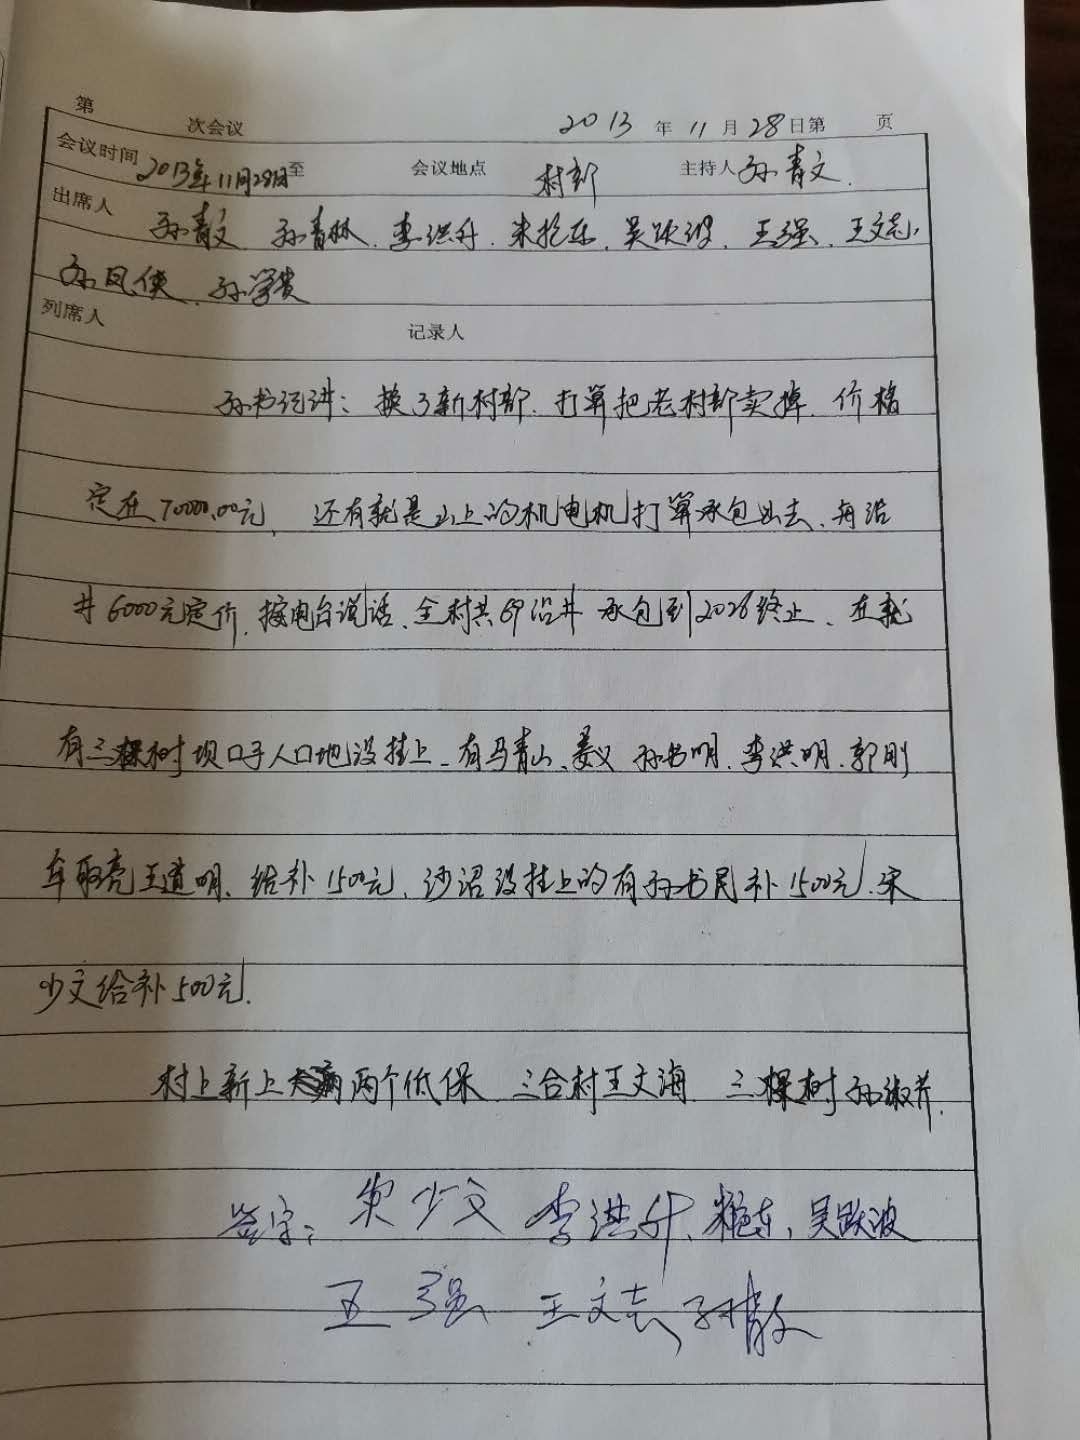 第 次会议 2013 年 11 月 28 日第 页
会议时间 2013年11月28日至 会议地点 村部 主持人 孙青文.
出席人 孙青文. 孙青林. 李洪升. 朱艳东. 吴跃波. 王强. 王文志.
孙凤侠. 孙学贵
列席人 记录人
孙书记讲: 换了新村部. 打算把老村部卖掉. 价格
定在70000.00元. 还有就是山上的机电机打算承包出去. 每沿
井6000元定价. 按电台说话. 全村共 沿井 承包到2026终止. 在就
有三棵树坝口子人口地没挂上. 有马青山、姜义 孙书明. 李洪明. 郭刚
车取亮王道明. 给补1500元. 沙沼没挂上的有孙书民补1500元. 宋
少文给补500元.
村上新上 两个低保 三合村王文海 三棵树孙淑芹.
签字: 宋少文 李洪升. 朱艳东. 吴跃波
王强 王文志 孙青文